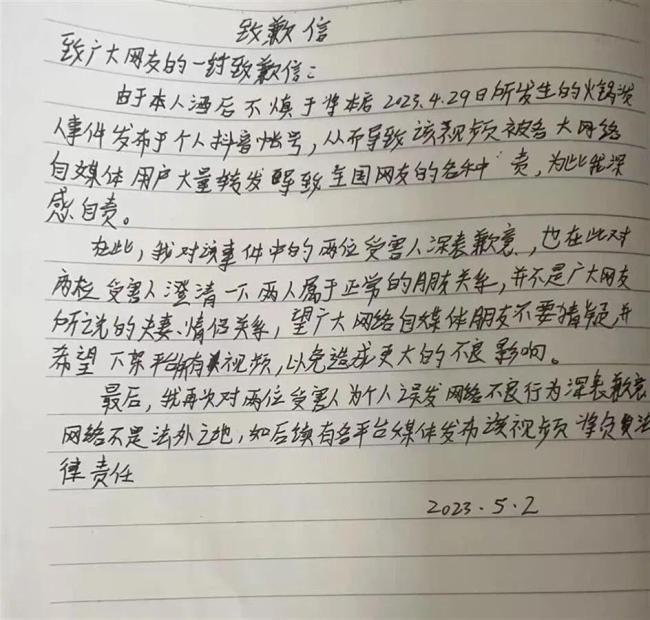 致歉信
致广大网友的一封致歉信:
由于本人酒后不慎于将本店2023.4.29日所发生的火锅泼
人事件发布于个人抖音帐号,从而导致该视频被各大网络
自媒体用户大量转发导致全国网友的各种 责,为此我深
感自责。
在此,我对该事件中的两位受害人深表歉意,也在此对
两位受害人澄清一下两人属于正常的朋友关系,并不是广大网友
所说的夫妻、情侣关系,望广大网络自媒体朋友不要猜疑,并
希望下架平台所有视频,以免造成更大的不良影响。
最后,我再次对两位受害人为个人误发网络不良行为深表歉意
网络不是法外之地,如后续有各平台媒体发布该视频将负责法
律责任
2023.5.2